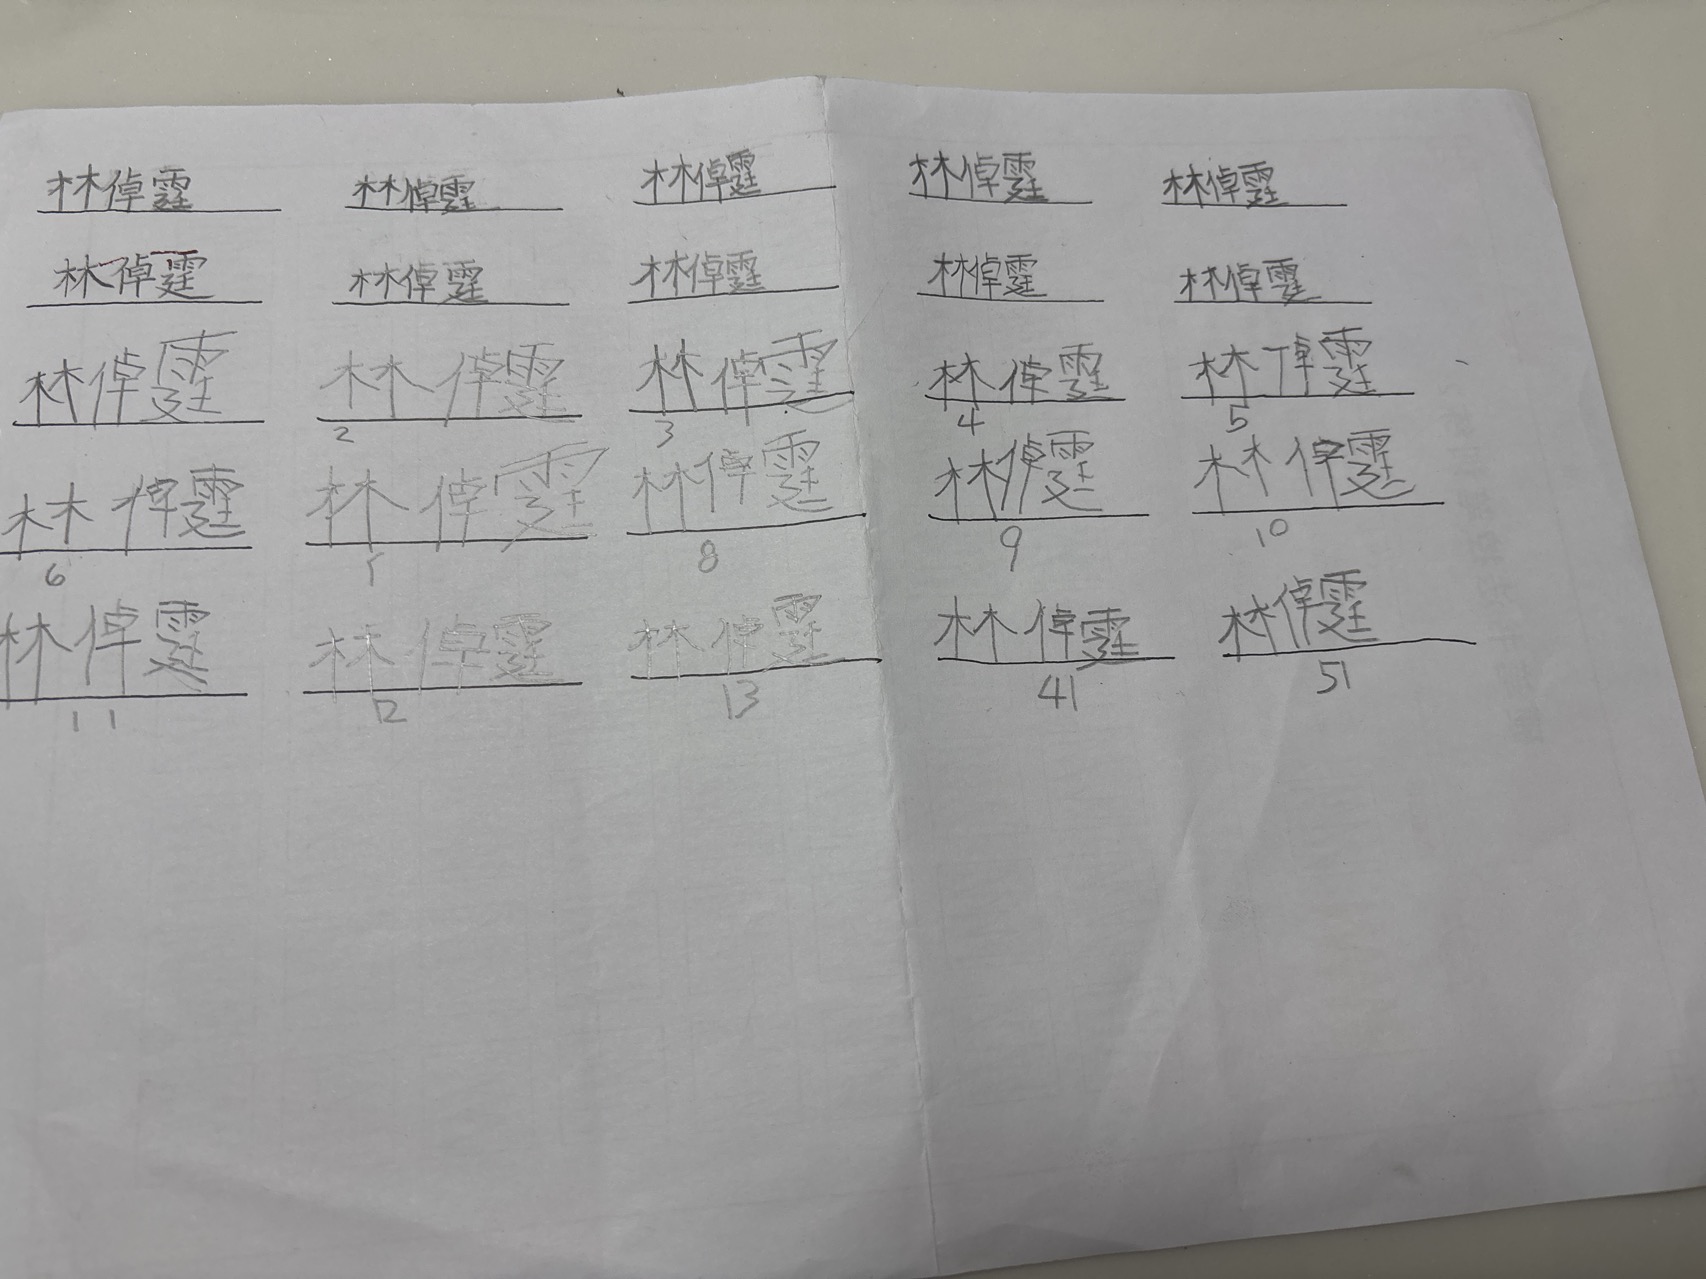 林倬霆 林倬霆 林倬霆 林倬霆 林倬霆
林倬霆 林倬霆 林倬霆 林倬霆 林倬霆
林倬霆 林倬霆 林倬霆 林倬霆 林倬霆
2 3 4 5
林倬霆 林倬霆 林倬霆 林倬霆 林倬霆
6 8 9 10
林倬霆 林倬霆 林倬霆 林倬霆 林倬霆
11 12 13 41 51